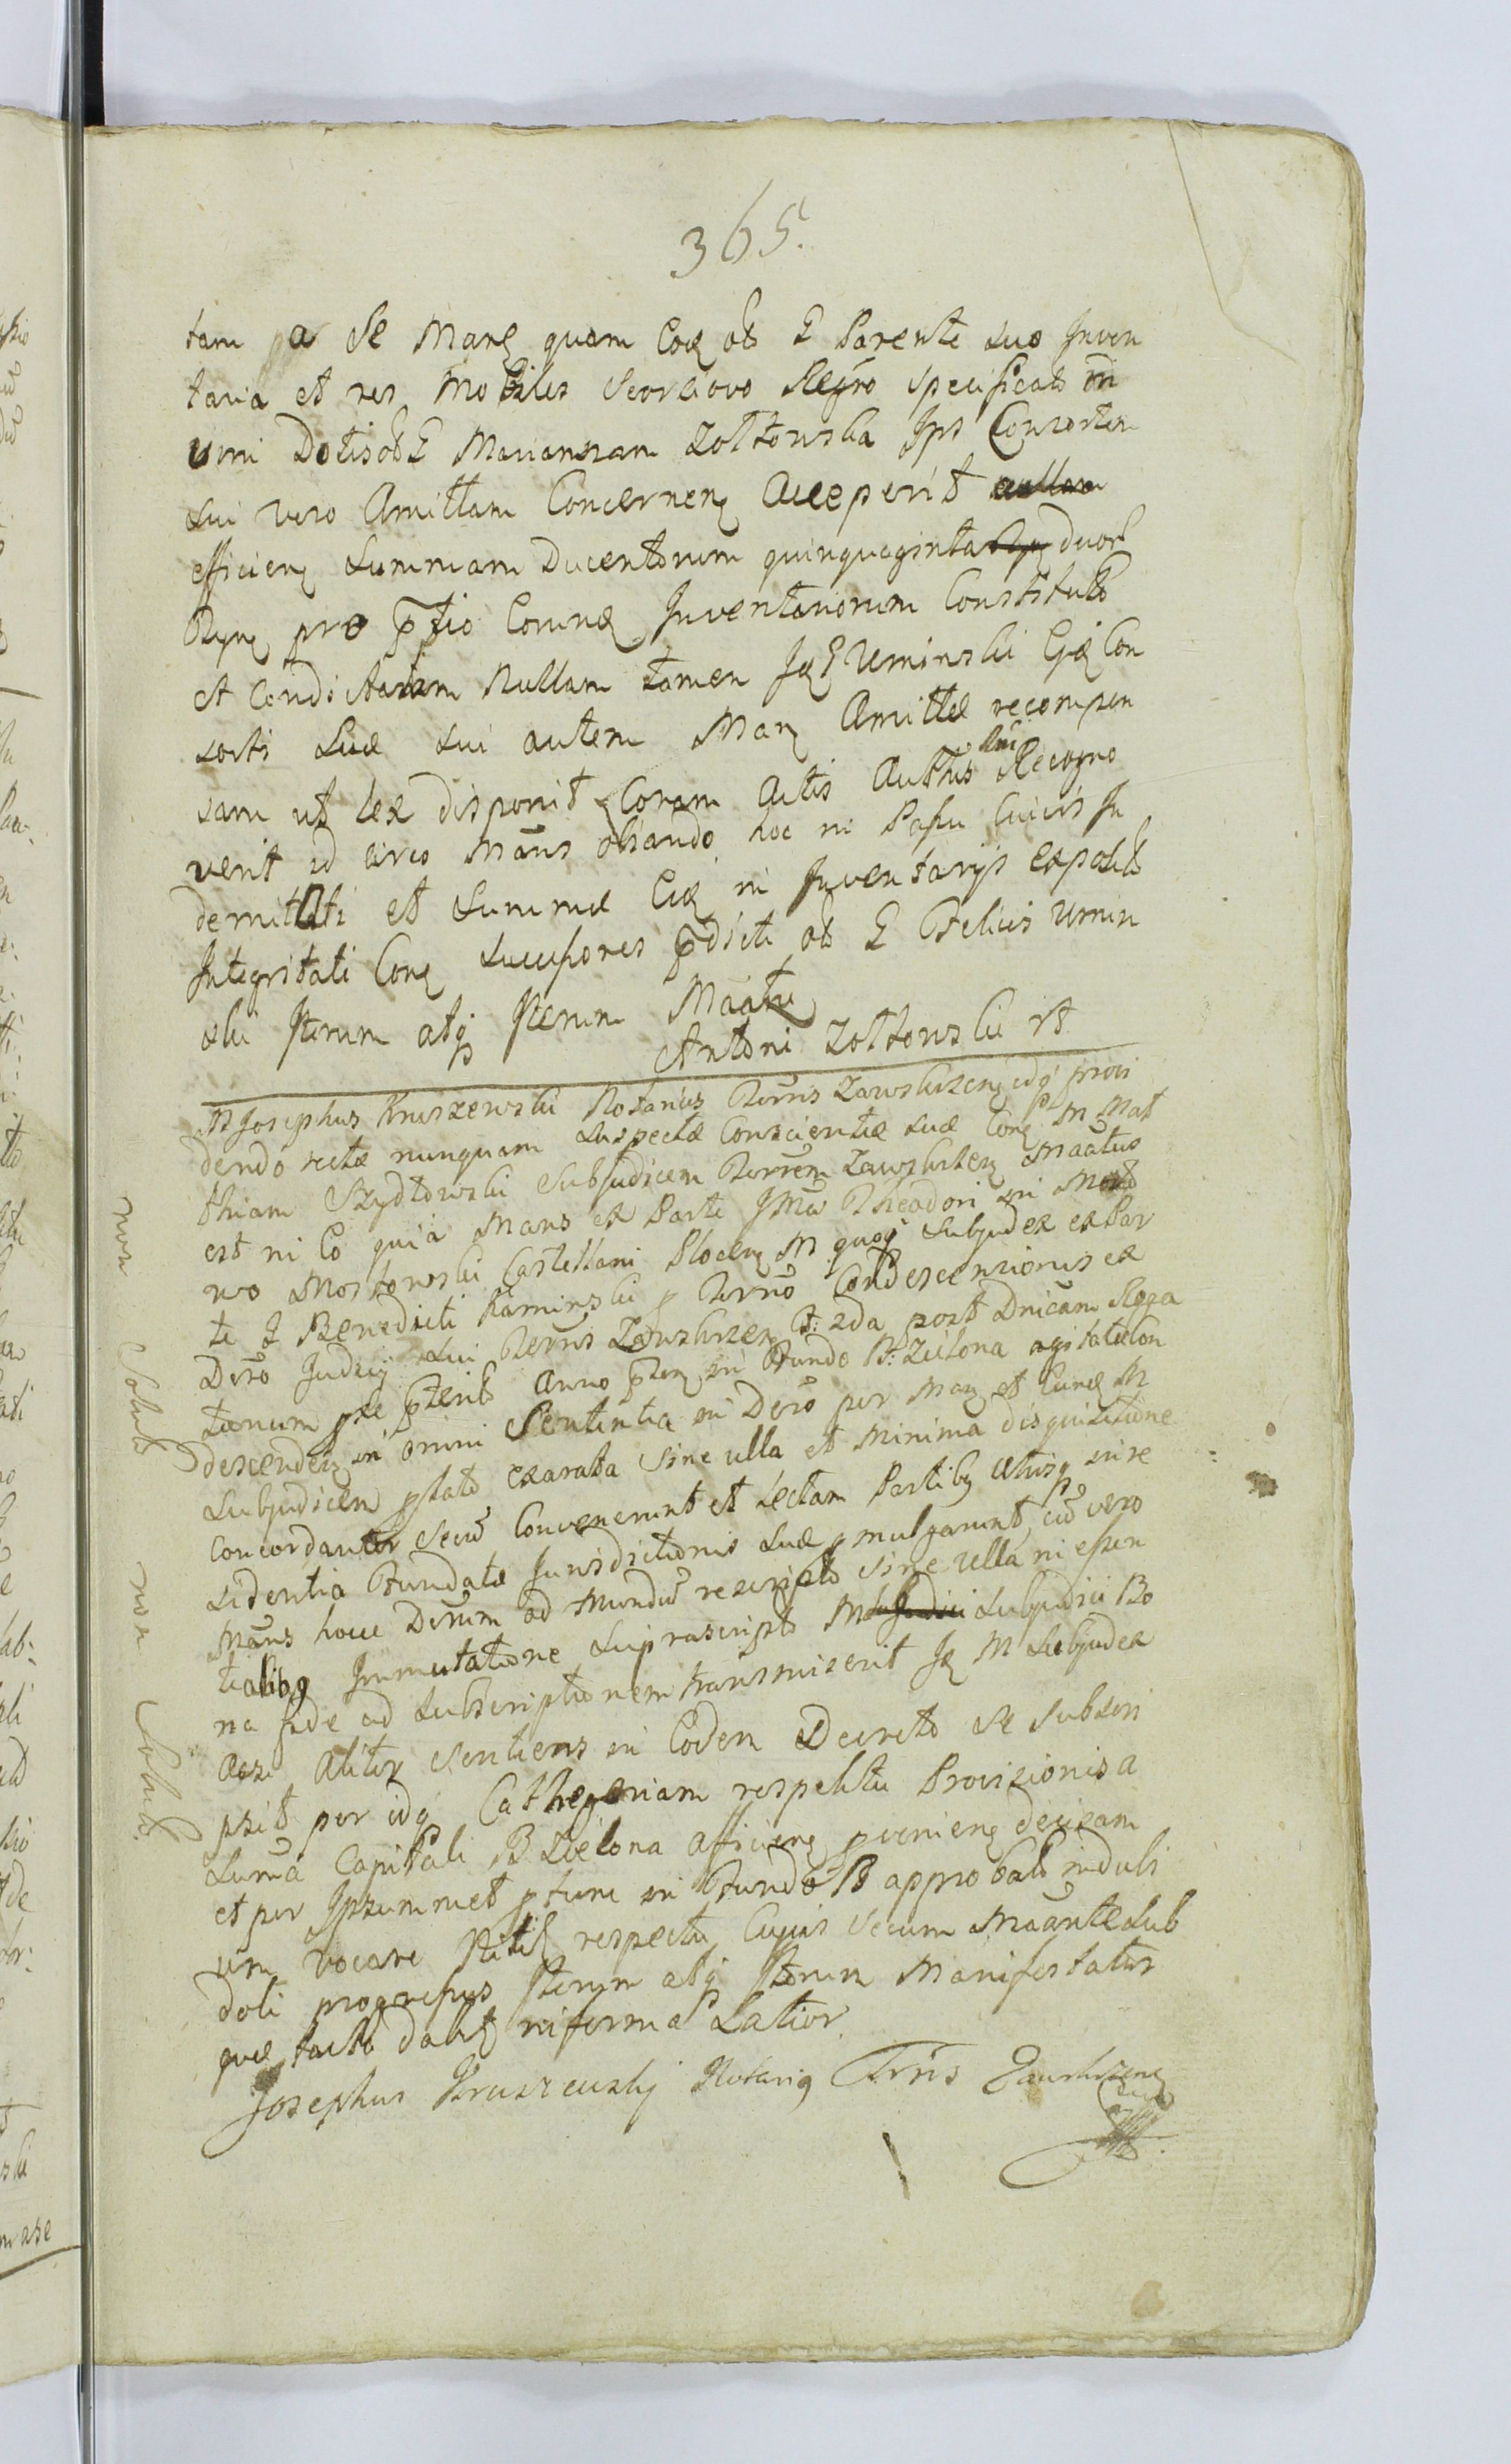 365.
tam a Se Man quam Eoq ab G Parente suo Inven
taria et res Mobiles seorsivo Regro specificat in
vim Dotis ob G Mariannam Zołtowska Ips Consortem
sui vero Amittam Concernen Acceperit nullam
efficien Summam Ducentorum quinquaginta duor
pro ptio Eorund Inventariorum Constituto
et Condictatam Nullam tamen Id G Uminski Ejd Con
sorti Suae sui autem Man Amittae recompen
sam ut lex disponit Coram Actis Authis Recogno
sui
verit id circo Mans obiando hoc in Passu cuivis In
demitati et Summae Ejd in Inventarys exposit
Integritati Con Successores pdicti ab G Felicis Umin
ski Iterum atq Iterum Maatur
Antoni Zołtowski rt
M Josephus Kruszewski Notarius Terris Zawskrzen idq provi
dendo rectae nunquam suspectae Conscientiae suae Con M Mat
thiam Szydłowski Subjudicem Terrem Zawskrzen Maatur
est in Eo quia Mans ex Parte Theodori in
wo Mostowski Castellani Plocen M quoq Subjudex ex Par
te G Benedicti Kaminski p Termo Condescensionis ex
Dero Judicy sui Terris Zawskrzen F: 2da post Dnicam Roga
tionum pxe pterit Anno pten in Fundo B: Zielona agitatae Con
descenden in omni Sententia in Dero per Man et Eund M
Subjudicem ptato exarata sine ulla et Minima disquisitione
Concordanter secum Convenerunt et lectam Partibq utrisq in re
sidentia Fundatae Jurisdictionis suae pmulgarunt, cum vero
Mans hocce Derum ad Mundum rescripto sine ulla in essen
tialibq Immutatione suprascripto M Subjudici Bo
na fide ad Subscriptionem transmiserit Id M Subjudex
Aliter sentiens in Eodem Decreto se subscri
psit per idq Cathegoriam respectu Provisionis a
Summa Capitali B Zielona afficien pvenien decisam
et per Ipsummet ptunc in Fundo B approbat indubi
um vocare respectu Cujus secum Maante sub
doli progressus Iterum atq Iterum Manifestatur
quae facta dabit informa Latior
Josephus Kruszewskj Notariq Trris Zawskrzen
non Solut
non Solut.